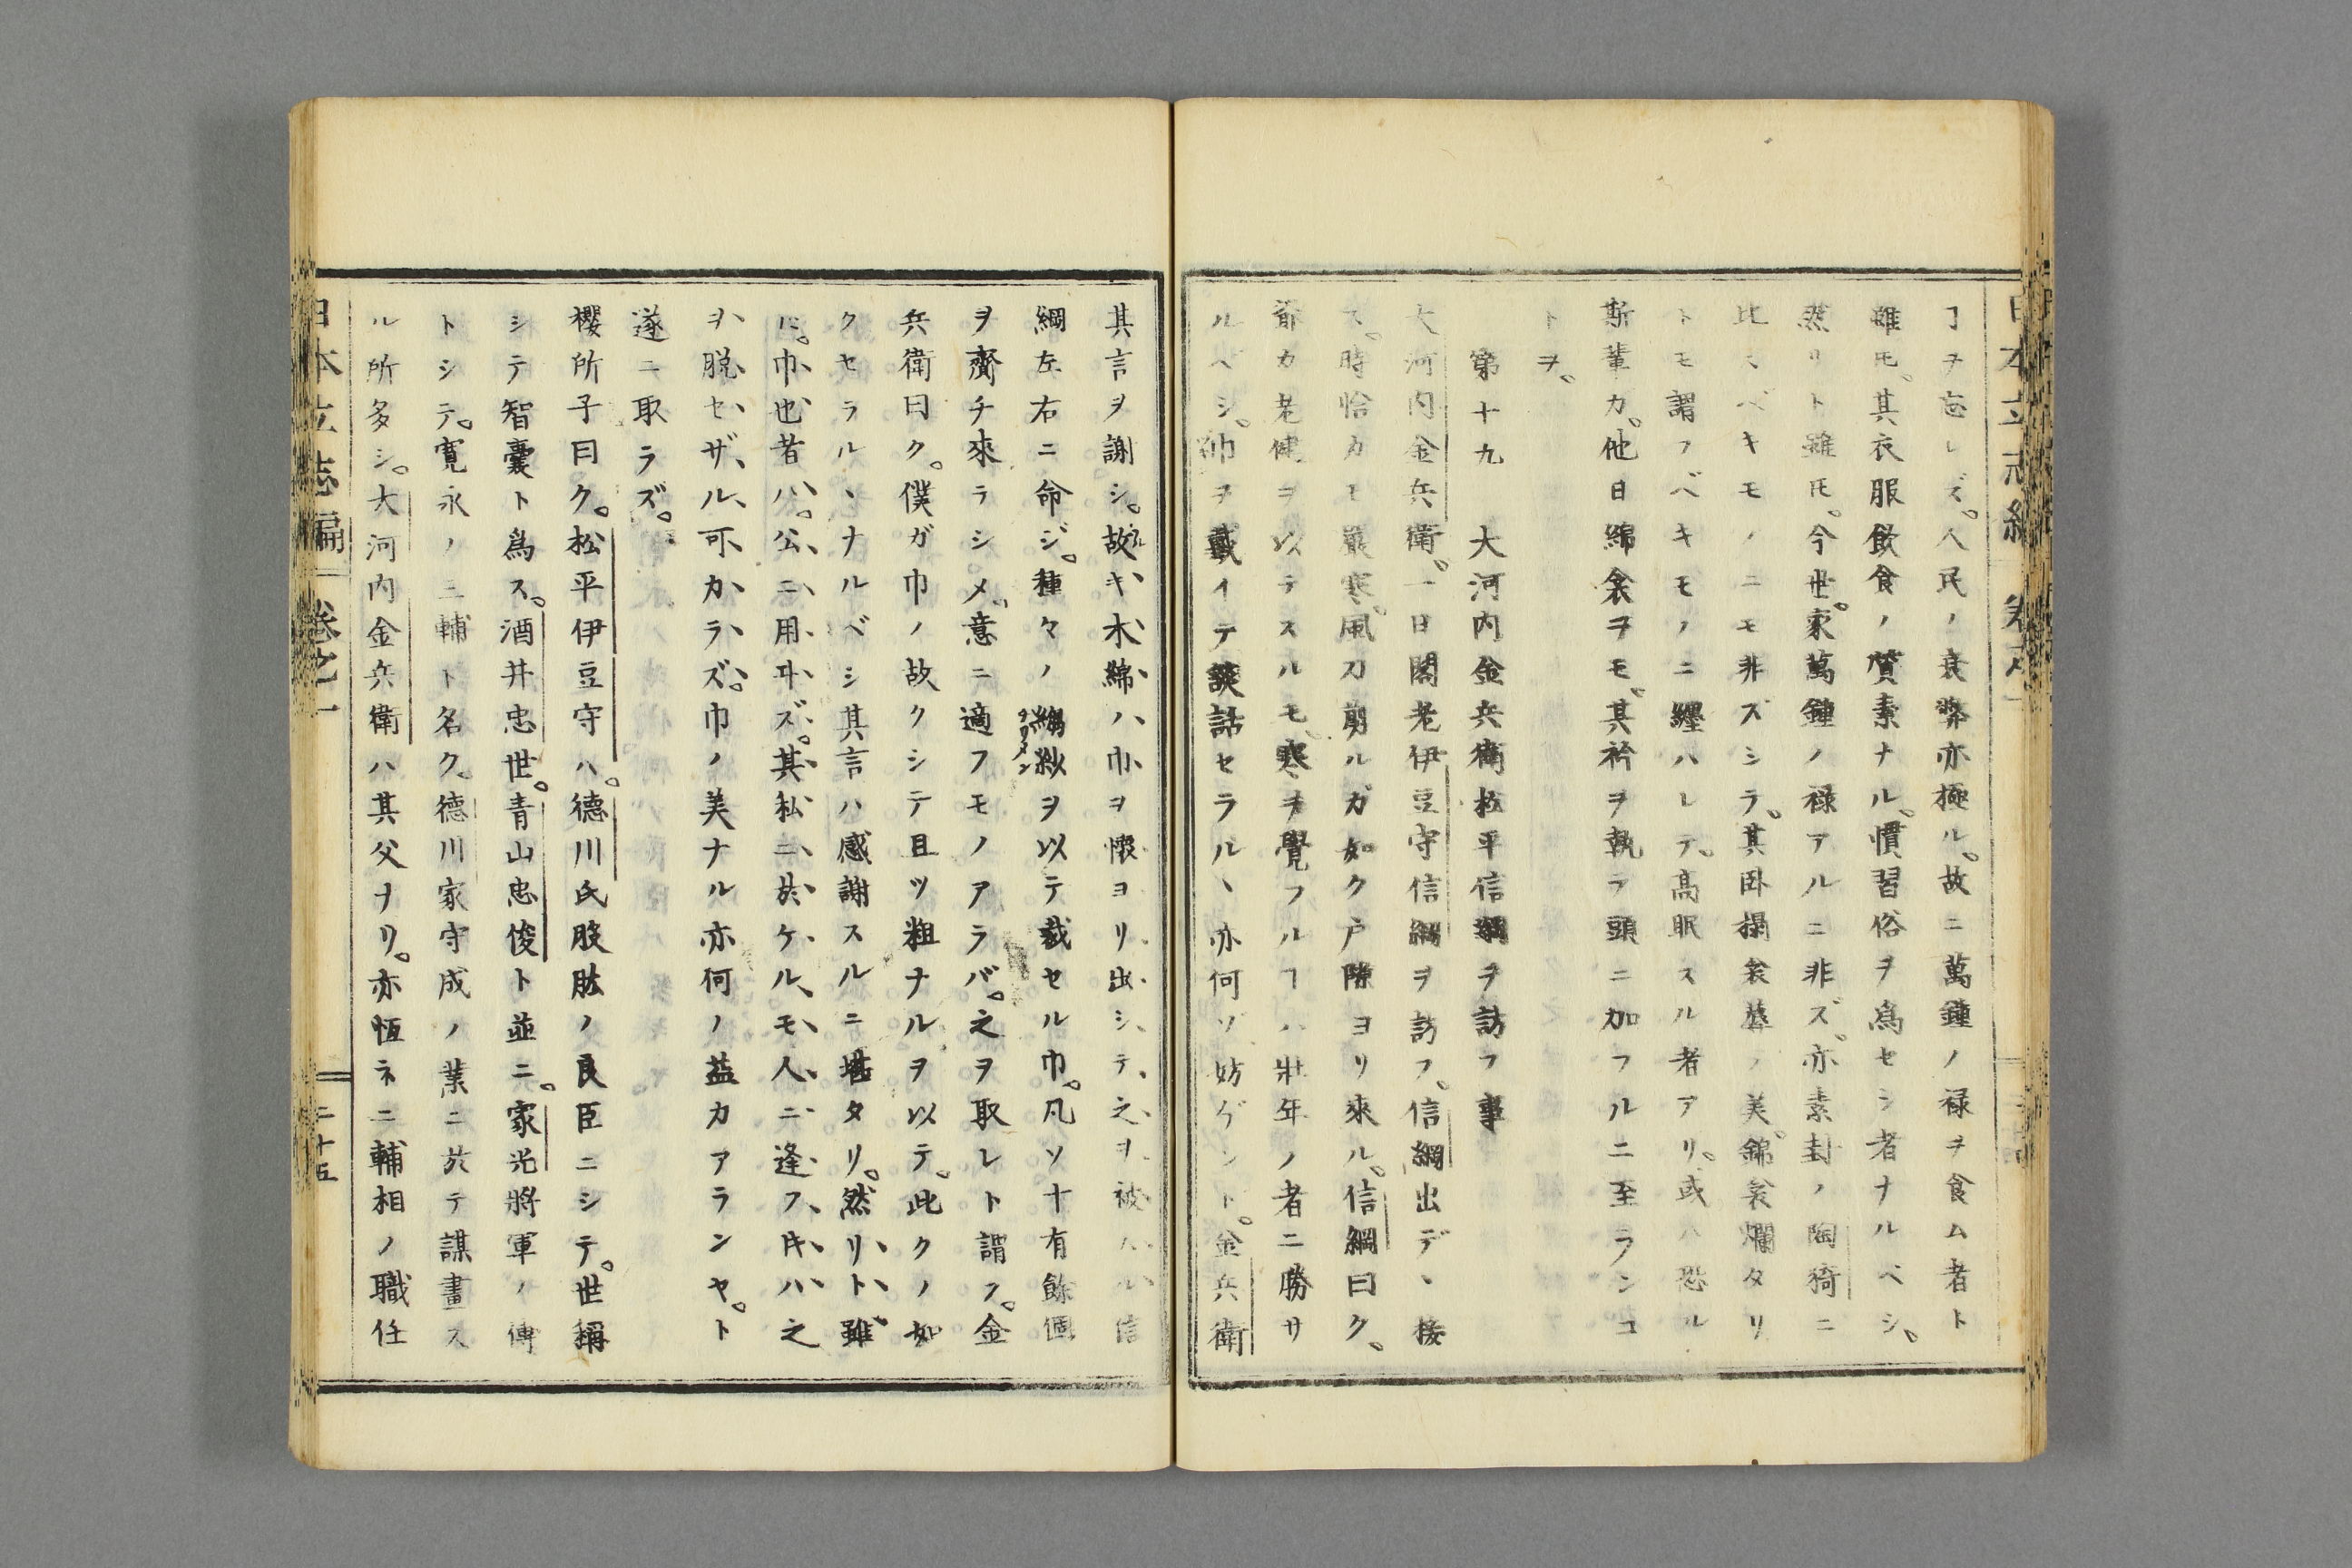 ヿヲ忘レズ。人民ノ衰弊亦極ル。故ニ萬鍾ノ禄ヲ食ム者ト
雖モ。其衣服飲食ノ質素ナル。慣習俗ヲ爲セシ者ナルベシ。
然リト雖𪜈。今世。家萬鍾ノ禄アルニ非ズ。亦素封ノ陶猗ニ
比スベキモノニモ非ズシラ。其臥榻衾蓐ノ美。錦衾爛タリ
トモ謂フベキモノニ纒ハレテ。高眠スル者アリ。或ハ恐ル
斯輩カ。他日綿衾ヲモ。其衿ヲ執テ頭ニ加フルニ至ランコ
トヲ。
第十九 大河内金兵衛松平信綱ヲ訪フ事
大河内金兵衛。一日閣老伊豆守信綱ヲ訪フ。信綱出デヽ接
ス。時恰カモ嚴寒。風刀剪ルガ如ク戸隙ヨリ來ル。信綱曰ク。
爺カ老健ヲ以テスルモ。寒ヲ覺フルヿハ壯年ノ者ニ勝サ
ルベシ。帥ヲ戴イテ談話セラルヽ亦何ゾ妨ゲント。金兵衛
其言ヲ謝シ。故キ木綿ハ巾ヲ懷ヨリ出シテ之ヲ被ハル信
綱左右ニ命ジ。種々ノ縐紗ヲ以テ裁セル巾。凡ソ十有餘個
ヲ齎チ來ラシメ。意ニ適フモノアラバ。之ヲ取レト謂フ。金
兵衛曰ク。僕ガ巾ノ故クシテ且ツ粗ナルヲ以テ。此クノ如
クセラルヽナルベシ其言ハ感謝スルニ堪タリ。然リト雖
𪜈。巾也者ハ。公ニ用ヰズ。其私ニ於ケルモ人ニ逢フ𪜈ハ之
ヲ脱セザル可カラズ。巾ノ美ナル亦何ノ益カアランヤ。ト
遂ニ取ラズ。
櫻所子曰ク。松平伊豆守ハ。德川氏股肱ノ良臣ニシテ。世稱
シテ智囊ト爲ス。酒井忠世。青山忠俊ト並ニ。家光將軍ノ傅
トシテ。寛永ノ三輔ト名ク。德川家守成ノ業ニ於テ謀畫ス
ル所多シ。大河内金兵衛ハ其父ナリ。亦恆ネニ輔相ノ職任
日本立志編 卷之一 二十五